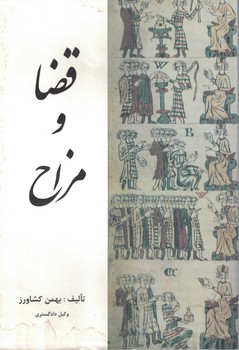 قضا
و
مزاح
تألیف : بهمن کشاورز
وکیل دادگستری
W
B